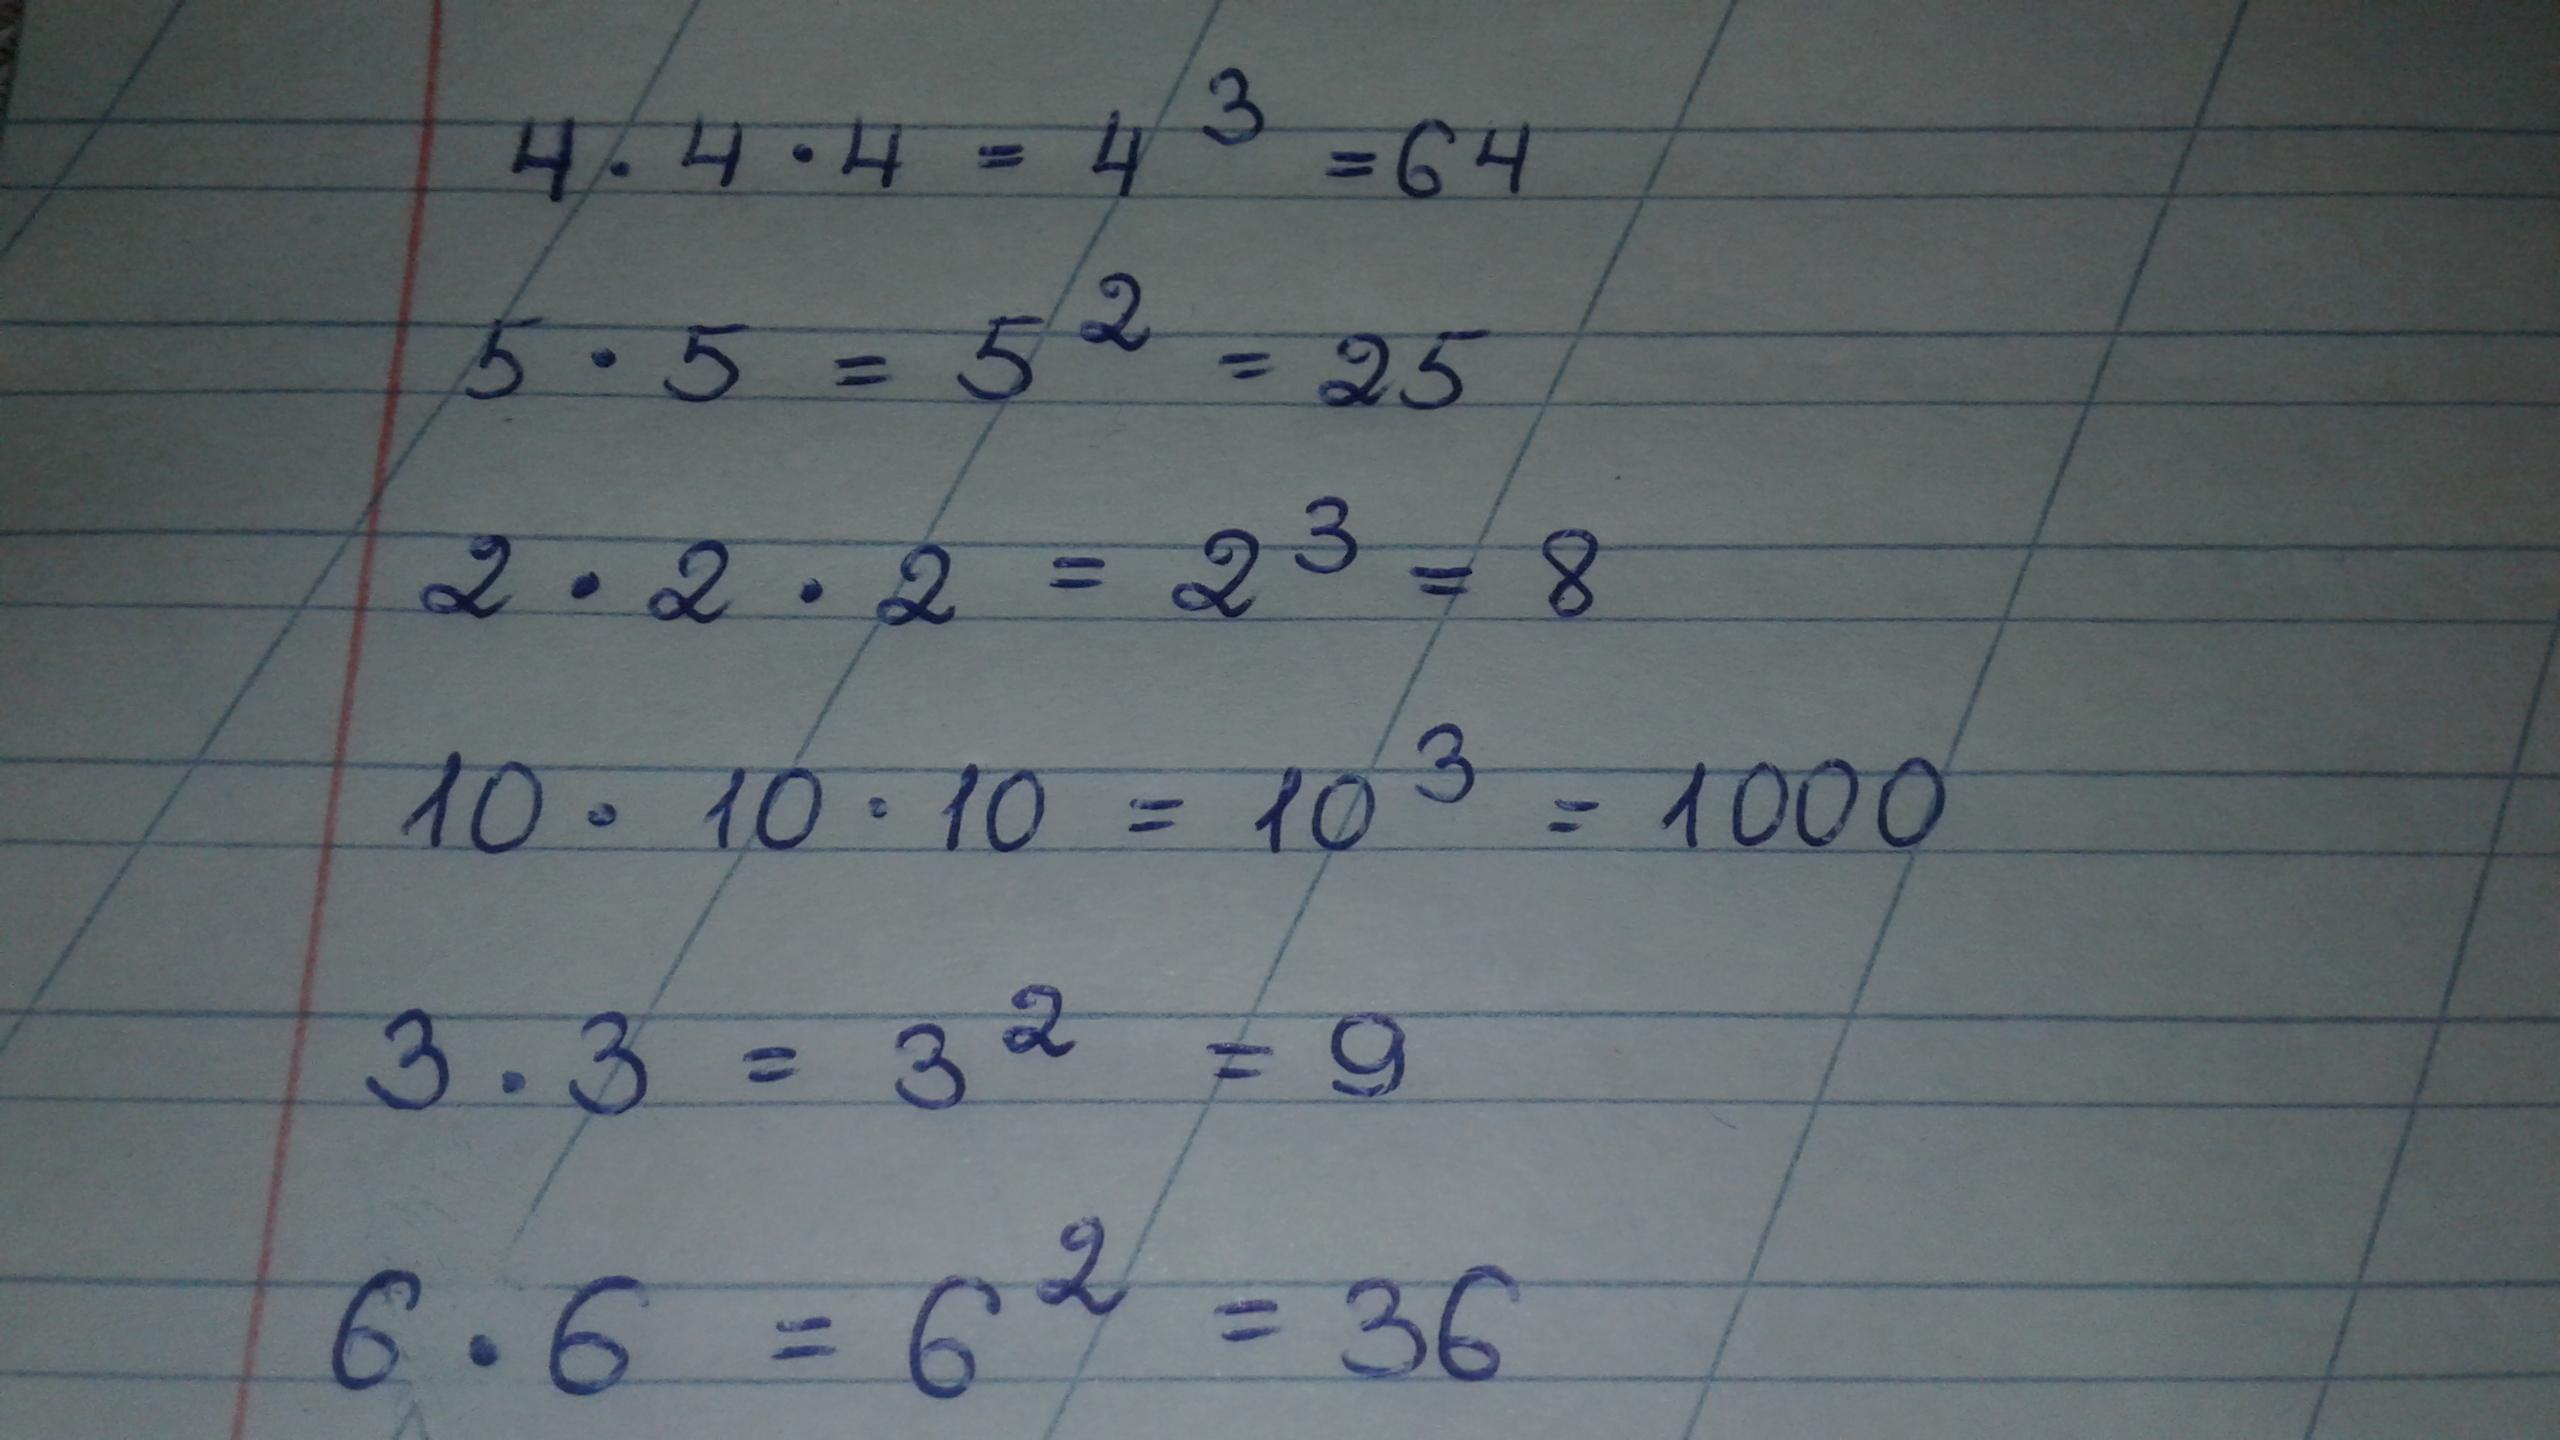 4 · 4 · 4 = 4³ = 64
5 · 5 = 5² = 25
2 · 2 · 2 = 2³ = 8
10 · 10 · 10 = 10³ = 1000
3 · 3 = 3² = 9
6 · 6 = 6² = 36